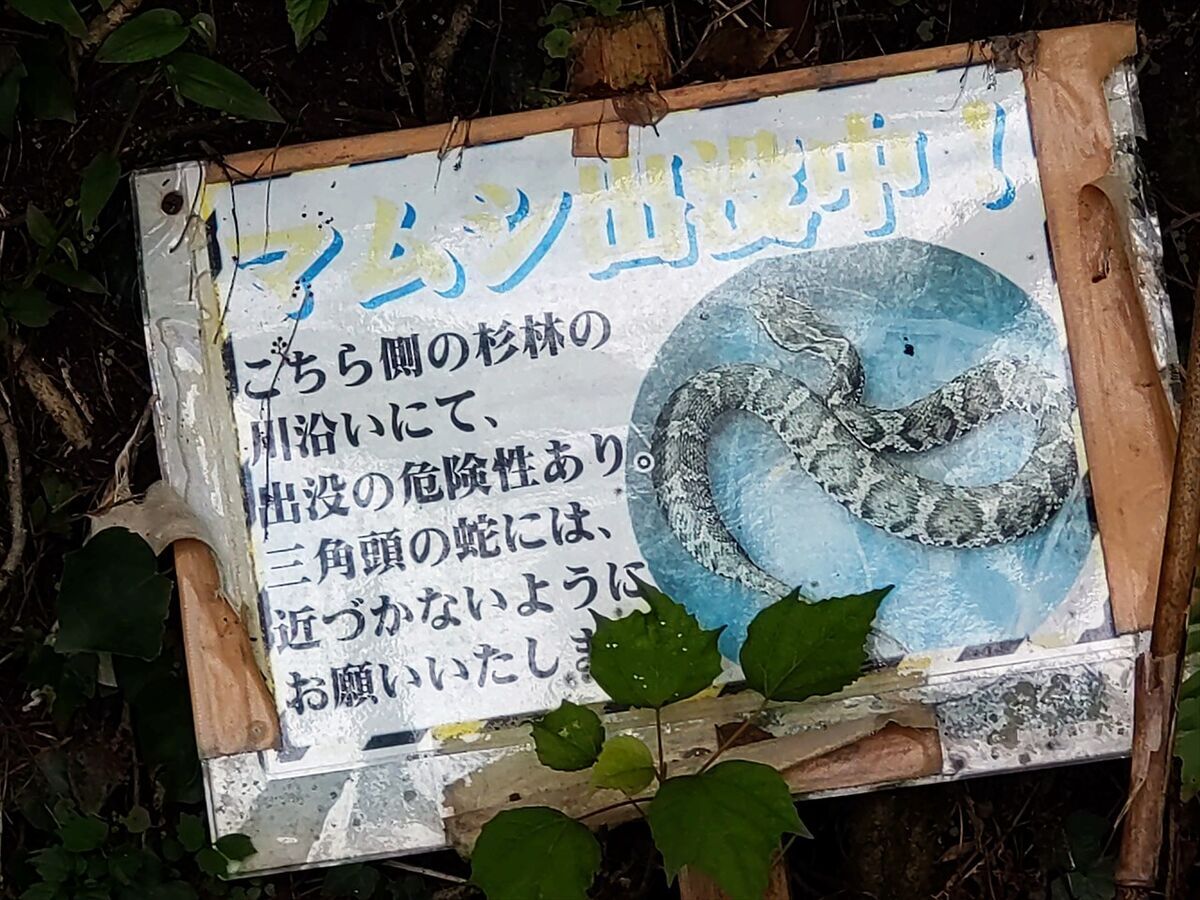 マムシ出没中！
こちら側の杉林の
川沿いにて、
出没の危険性あり
三角頭の蛇には、
近づかないように
お願いいたしま